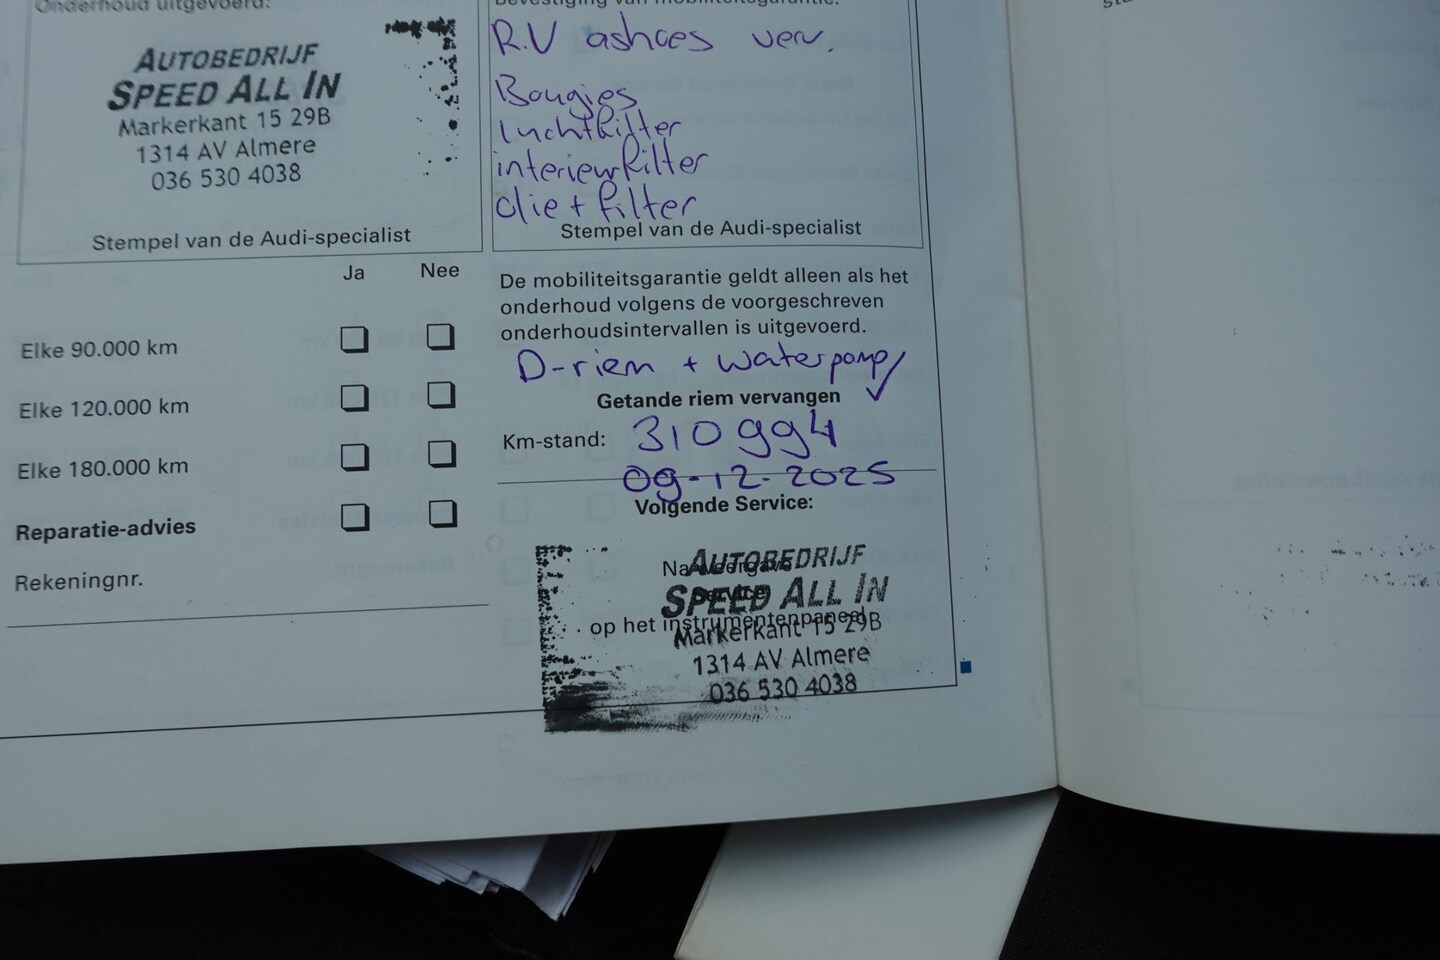 Onderhoud uitgevoerd:
AUTOBEDRIJF
SPEED ALL IN
Markerkant 15 29B
1314 AV Almere
036 530 4038
Stempel van de Audi-specialist
Bevestiging van mobiliteitsgarantie:
R.V ashoes verv.
Bougies
luchtfilter
interieurfilter
olie + filter
Stempel van de Audi-specialist
Ja Nee
Elke 90.000 km
Elke 120.000 km
Elke 180.000 km
Reparatie-advies
Rekeningnr.
De mobiliteitsgarantie geldt alleen als het
onderhoud volgens de voorgeschreven
onderhoudsintervallen is uitgevoerd.
D-riem + waterpomp
Getande riem vervangen
Km-stand: 310994
09-12-2025
Volgende Service:
Na weergave
Service
op het instrumentenpaneel
AUTOBEDRIJF
SPEED ALL IN
Markerkant 15 29B
1314 AV Almere
036 530 4038